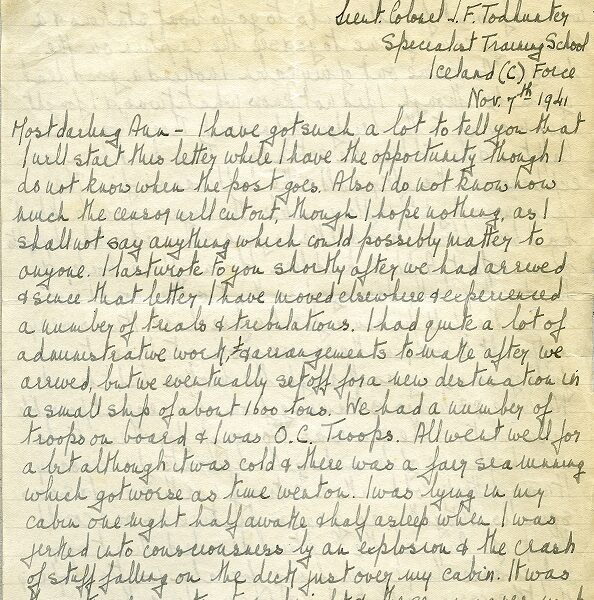 Lieut. Colonel J. F. Todhunter
Specialist Training School
Iceland (C) Force
Nov. 7th 1941
Most darling Ann - I have got such a lot to tell you that
I will start this letter while I have the opportunity though I
do not know when the post goes. Also I do not know how
much the censor will cut out, though I hope nothing, as I
shall not say anything which could possibly matter to
anyone. I last wrote to you shortly after we had arrived
& since that letter I have moved elsewhere & experienced
a number of trials & tribulations. I had quite a lot of
administrative work, & arrangements to make after we
arrived, but we eventually set off for a new destination in
a small ship of about 1600 tons. We had a number of
troops on board & I was O.C. Troops. All went well for
a bit although it was cold & there was a fair sea running
which got worse as time went on. I was lying in my
cabin one night half awake & half asleep when I was
jerked into consciousness by an explosion & the crash
of stuff falling on the deck just over my cabin. It was